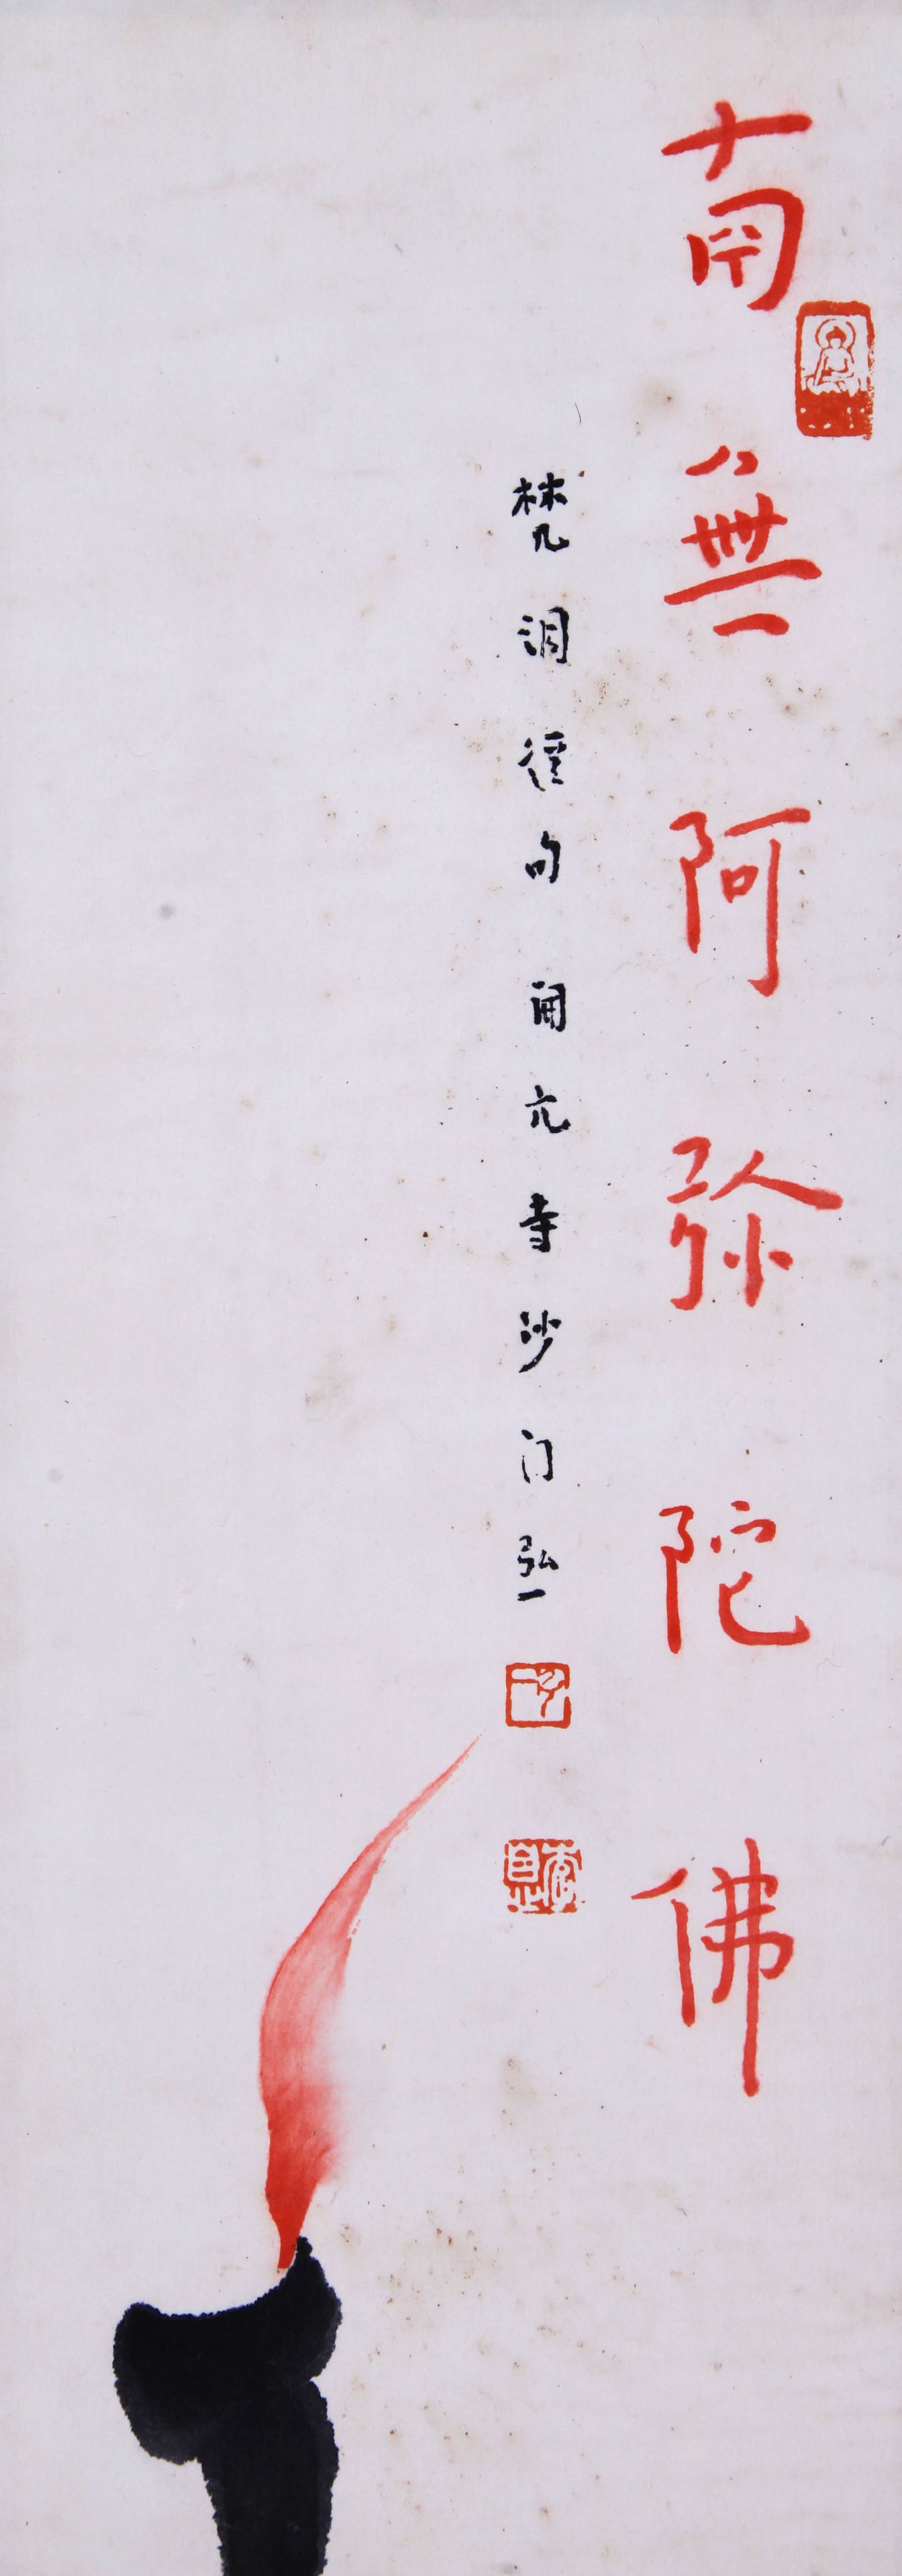 南無阿弥陀佛
梵句開元寺沙门弘一